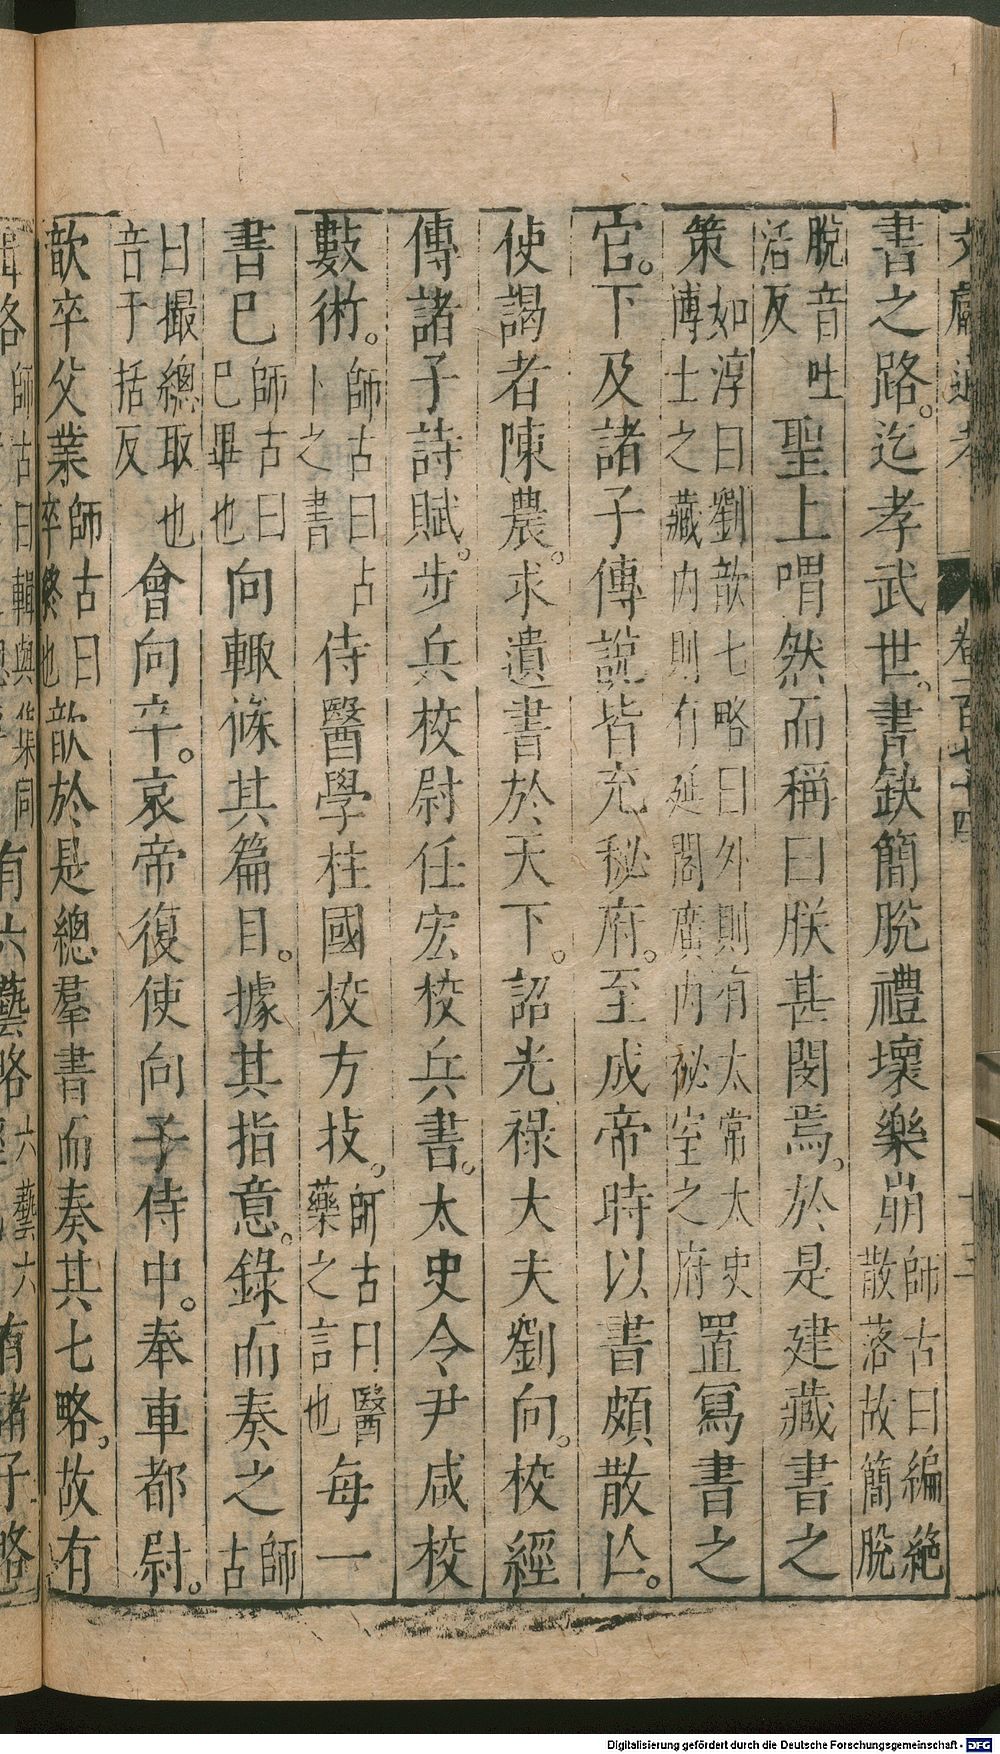 文獻通考 卷一百七十四 十二
書之路。迄孝武世。書缺簡脫禮壞樂崩師古曰編絕散落故簡脫
脫音吐活反聖上喟然而稱曰朕甚閔焉。於是建藏書之
策如淳曰劉歆七略曰外則有太常太史博士之藏內則有延閣廣內祕室之府置寫書之
官。下及諸子傳說皆充秘府。至成帝時以書頗散亾。
使謁者陳農。求遺書於天下。詔光祿大夫劉向。校經
傳諸子詩賦。步兵校尉任宏校兵書。太史令尹咸校
數術。師古曰占卜之書侍醫學柱國校方技。師古曰醫藥之言也每一
書已師古曰已畢也向輙條其篇目。據其指意。錄而奏之師古
曰撮總取也音于括反會向卒。哀帝復使向子侍中。奉車都尉。
歆卒父業師古曰卒終也歆於是總羣書而奏其七略。故有
輯略師古曰輯與集同有六藝略六藝六有諸子略
Digitalisierung gefördert durch die Deutsche Forschungsgemeinschaft - DFG